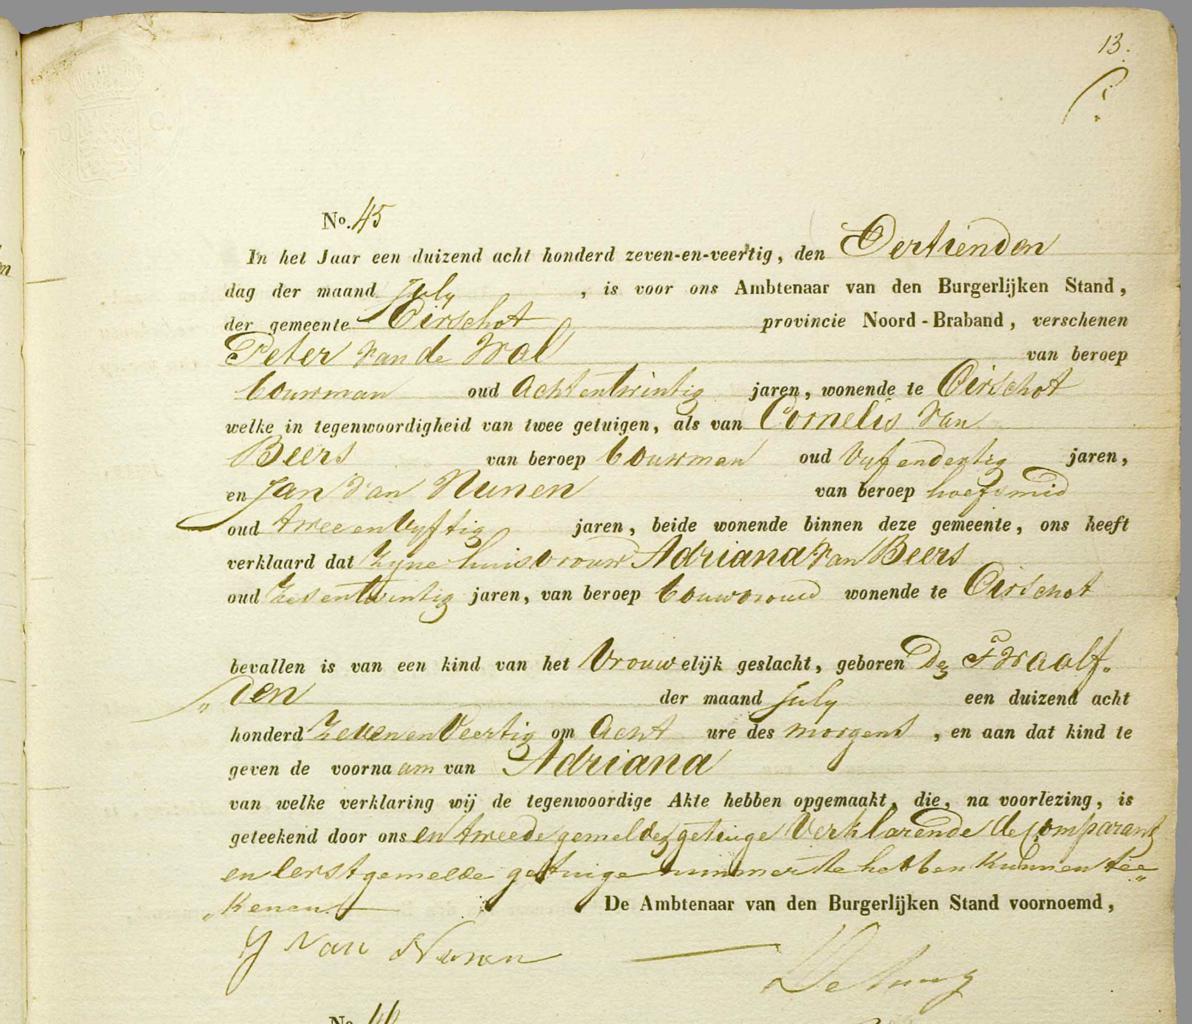 13.
No. 45
In het Jaar een duizend acht honderd zeven-en-veertig, den Dertienden
dag der maand July , is voor ons Ambtenaar van den Burgerlijken Stand,
der gemeente Oirschot provincie Noord-Braband, verschenen
Peter van de Wal van beroep
bouwman oud Achtentwintig jaren, wonende te Oirschot
welke in tegenwoordigheid van twee getuigen, als van Cornelis van
Beers van beroep bouwman oud Vyfendertig jaren,
en Jan van Nunen van beroep hoefsmid
oud tweeenvyftig jaren, beide wonende binnen deze gemeente, ons heeft
verklaard dat zyne huisvrouw Adriana van Beers
oud zesentwintig jaren, van beroep bouwvrouw wonende te Oirschot
bevallen is van een kind van het Vrouwelijk geslacht, geboren Den Twaalf„
„den der maand July een duizend acht
honderd zevenenveertig om Acht ure des morgens , en aan dat kind te
geven de voornaam van Adriana
van welke verklaring wij de tegenwoordige Akte hebben opgemaakt, die, na voorlezing, is
geteekend door ons en tweede gemelde getuige Verklarende de Comparant
en eerstgemelde getuige nimmer te hebben kunnen tee„
„kenen De Ambtenaar van den Burgerlijken Stand voornoemd,
J van Nunen
No. 46